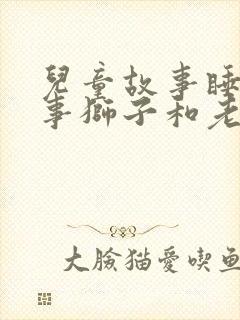 兒童故事睡
事獅子和老
大臉猫愛喫鱼